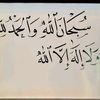 سُبْحَانَ اللَّهِ وَالْحَمْدُ لِلَّهِ
وَلَا إِلَهَ إِلَّا اللَّهُ